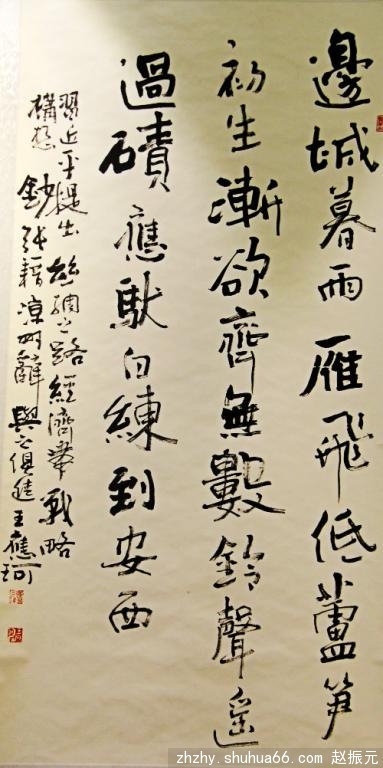 邊城暮雨雁飛低蘆筍
初生漸欲齊無數鈴聲遥
過磧應馱白練到安西
習近平提出絲綢之路經濟帶戰略
構想 鈔張籍凉州辭與之俱進王應珂
zhzhy.shuhua66.com 赵振元